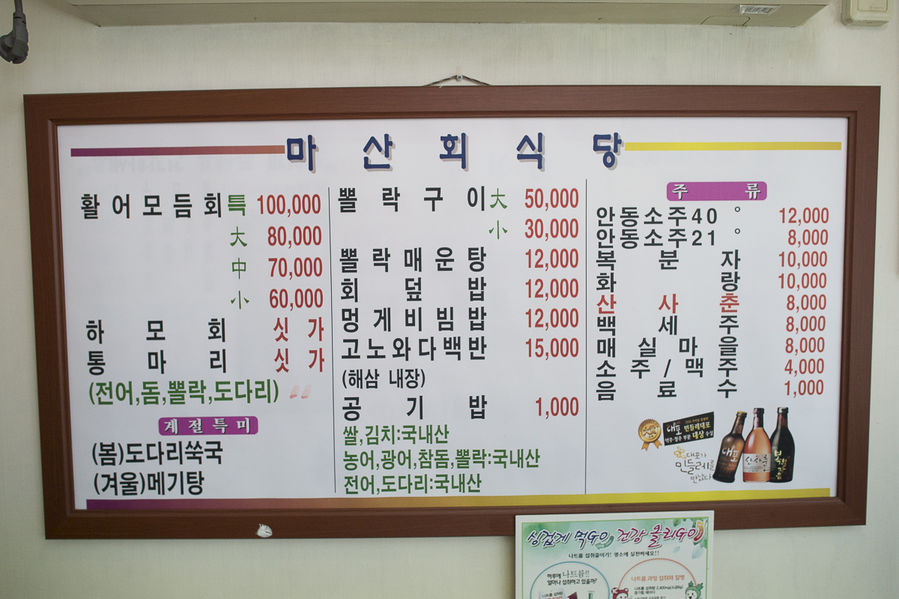 마산회식당
활어모듬회 特 100,000
大 80,000
中 70,000
小 60,000
하모회 싯가
통마리 싯가
(전어,돔,뽈락,도다리)
계절특미
(봄)도다리쑥국
(겨울)메기탕
뽈락구이 大 50,000
小 30,000
뽈락매운탕 12,000
회덮밥 12,000
멍게비빔밥 12,000
고노와다백반 15,000
(해삼 내장)
공기밥 1,000
쌀,김치:국내산
농어,광어,참돔,뽈락:국내산
전어,도다리:국내산
주류
안동소주40° 12,000
안동소주21° 8,000
복분자 10,000
화랑 10,000
산사춘 8,000
백세주 8,000
매실마을 8,000
소주/맥주 4,000
음료수 1,000
대포 민들레대포
대상 수상
대포가
민들레를
만났다
싱겁게 먹Go 건강 올리Go
나트륨 섭취줄이기! 평소에 실천하세요!!
하루에 나트륨!!
얼마나 섭취하고 있을까?
나트륨 과잉 섭취와 질병